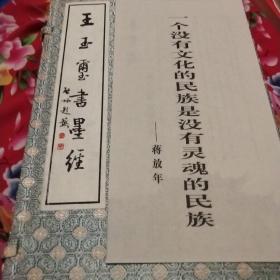 一个没有文化的民族是没有灵魂的民族
——蒋放年
王玉玺书墨经
启功题签